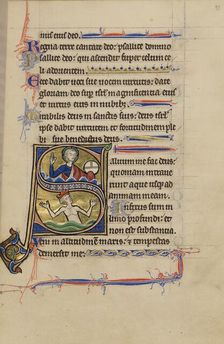 mus eius deo.
Regna terre cantate deo: psallite domino
psallite deo: qui ascendit super celum ce
li ad orientem.
Ecce dabit uoci sue uocem uirtutis: date
gloriam deo super isrl magnificentia
eius et uirtus eius in nubibz.
Mirabilis deus in sanctis suis: deus isrl
ipse dabit uirtutem et fortitudinem ple
bi sue benedictus deus.
Saluum me fac deus:
quoniam intraue
runt aque usqz ad
animam meam.
Infixus sum in
limo profundi: et
non est substantia.
Veni in altitudinem maris: et tempestas
demersit me.